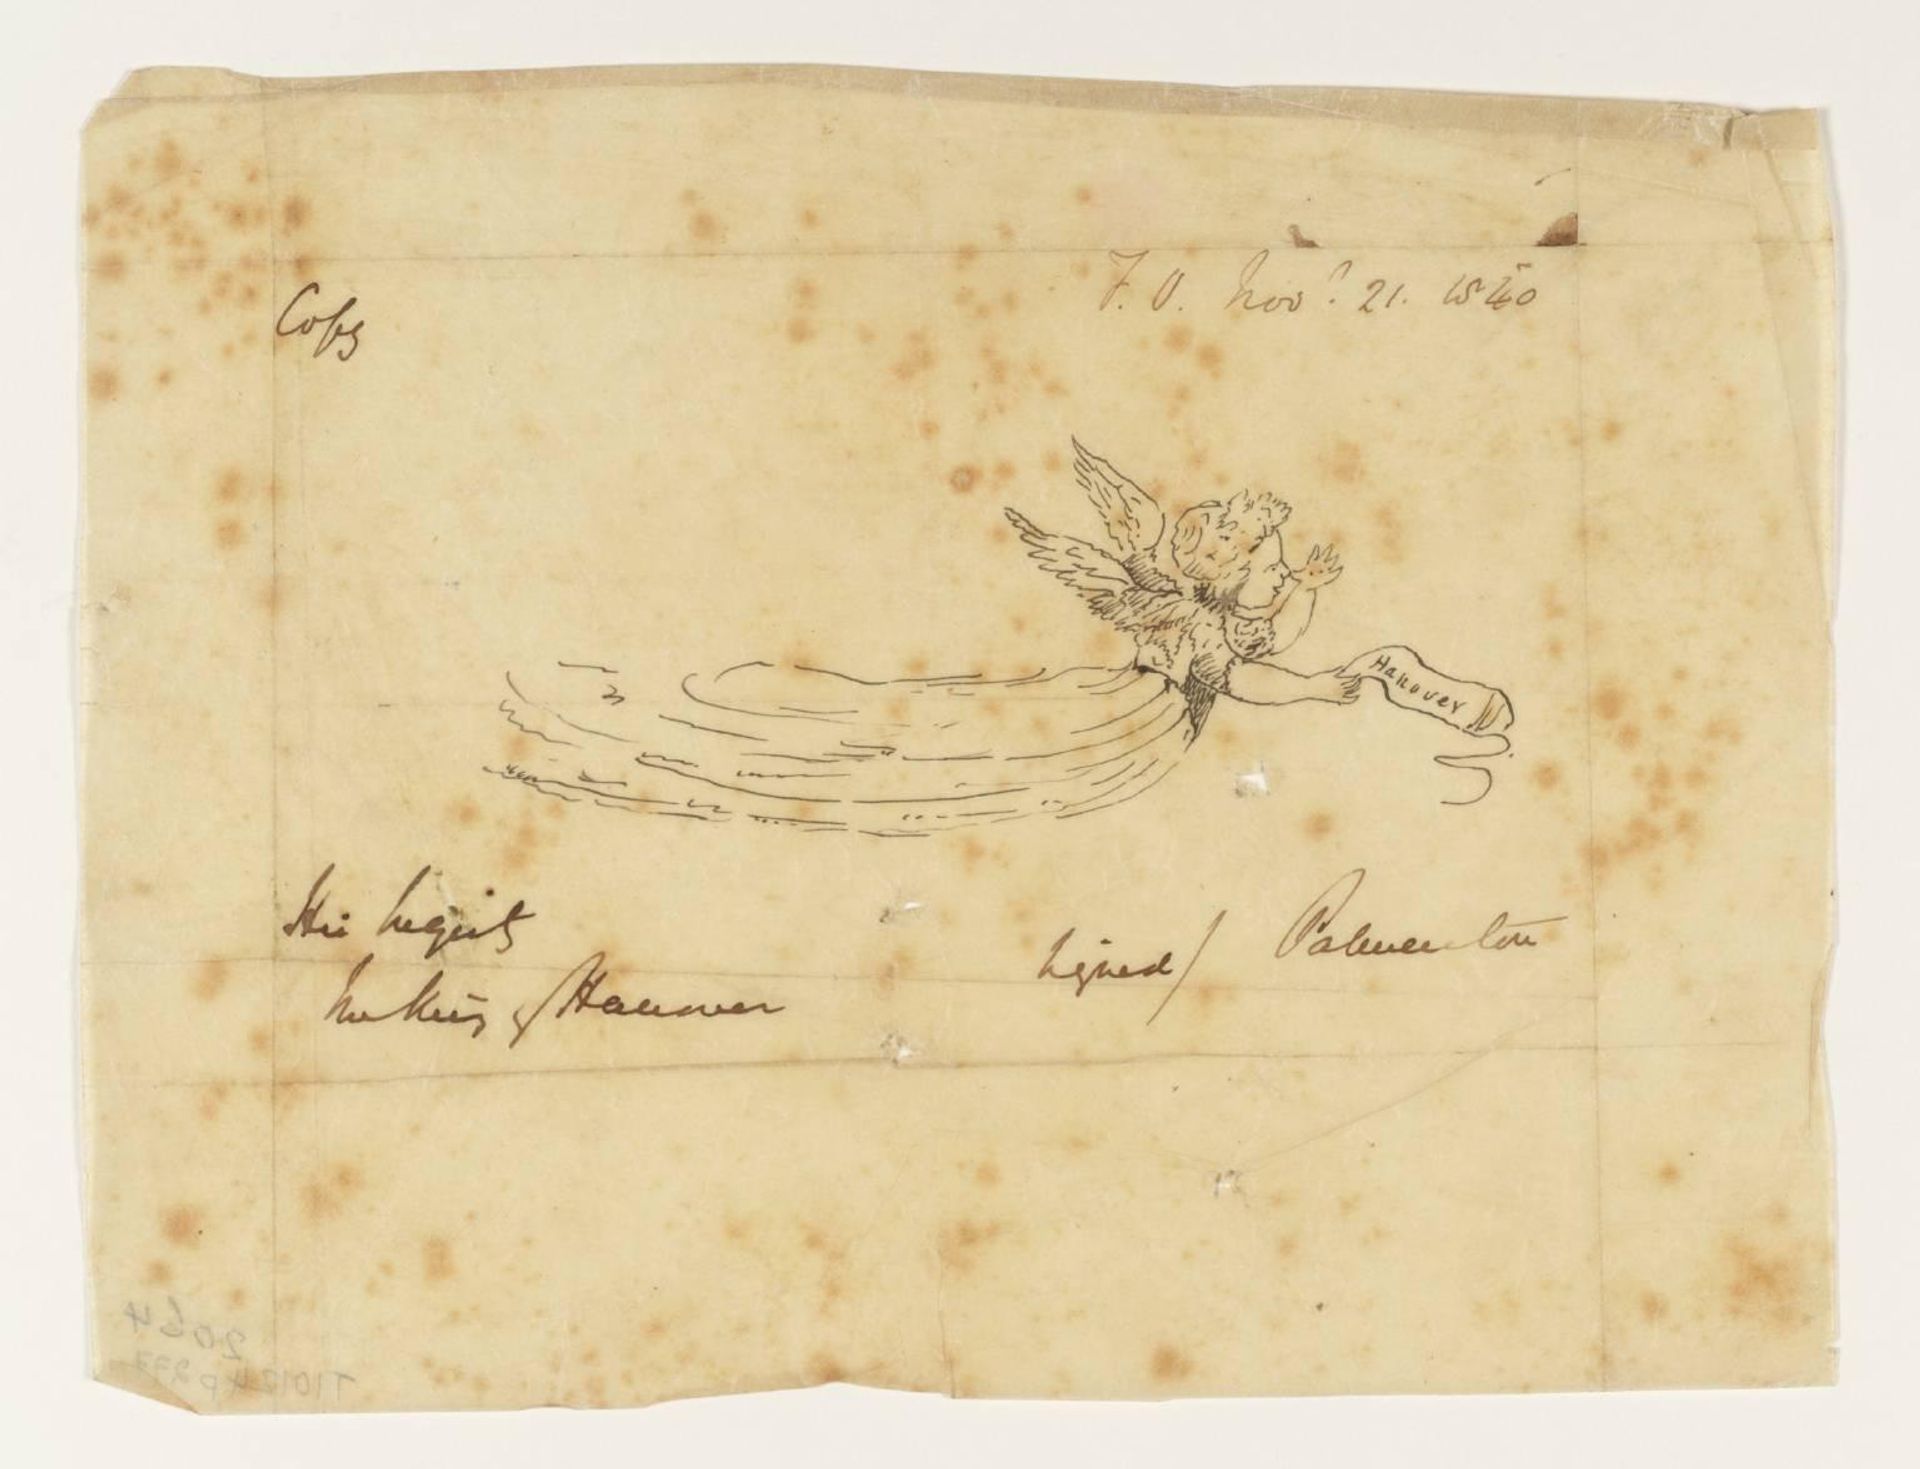 Copy
F. O. Novr. 21. 1840
Hanover
His Majesty
The King of Hanover
Signed / Palmerston
2064
T10124 p 277